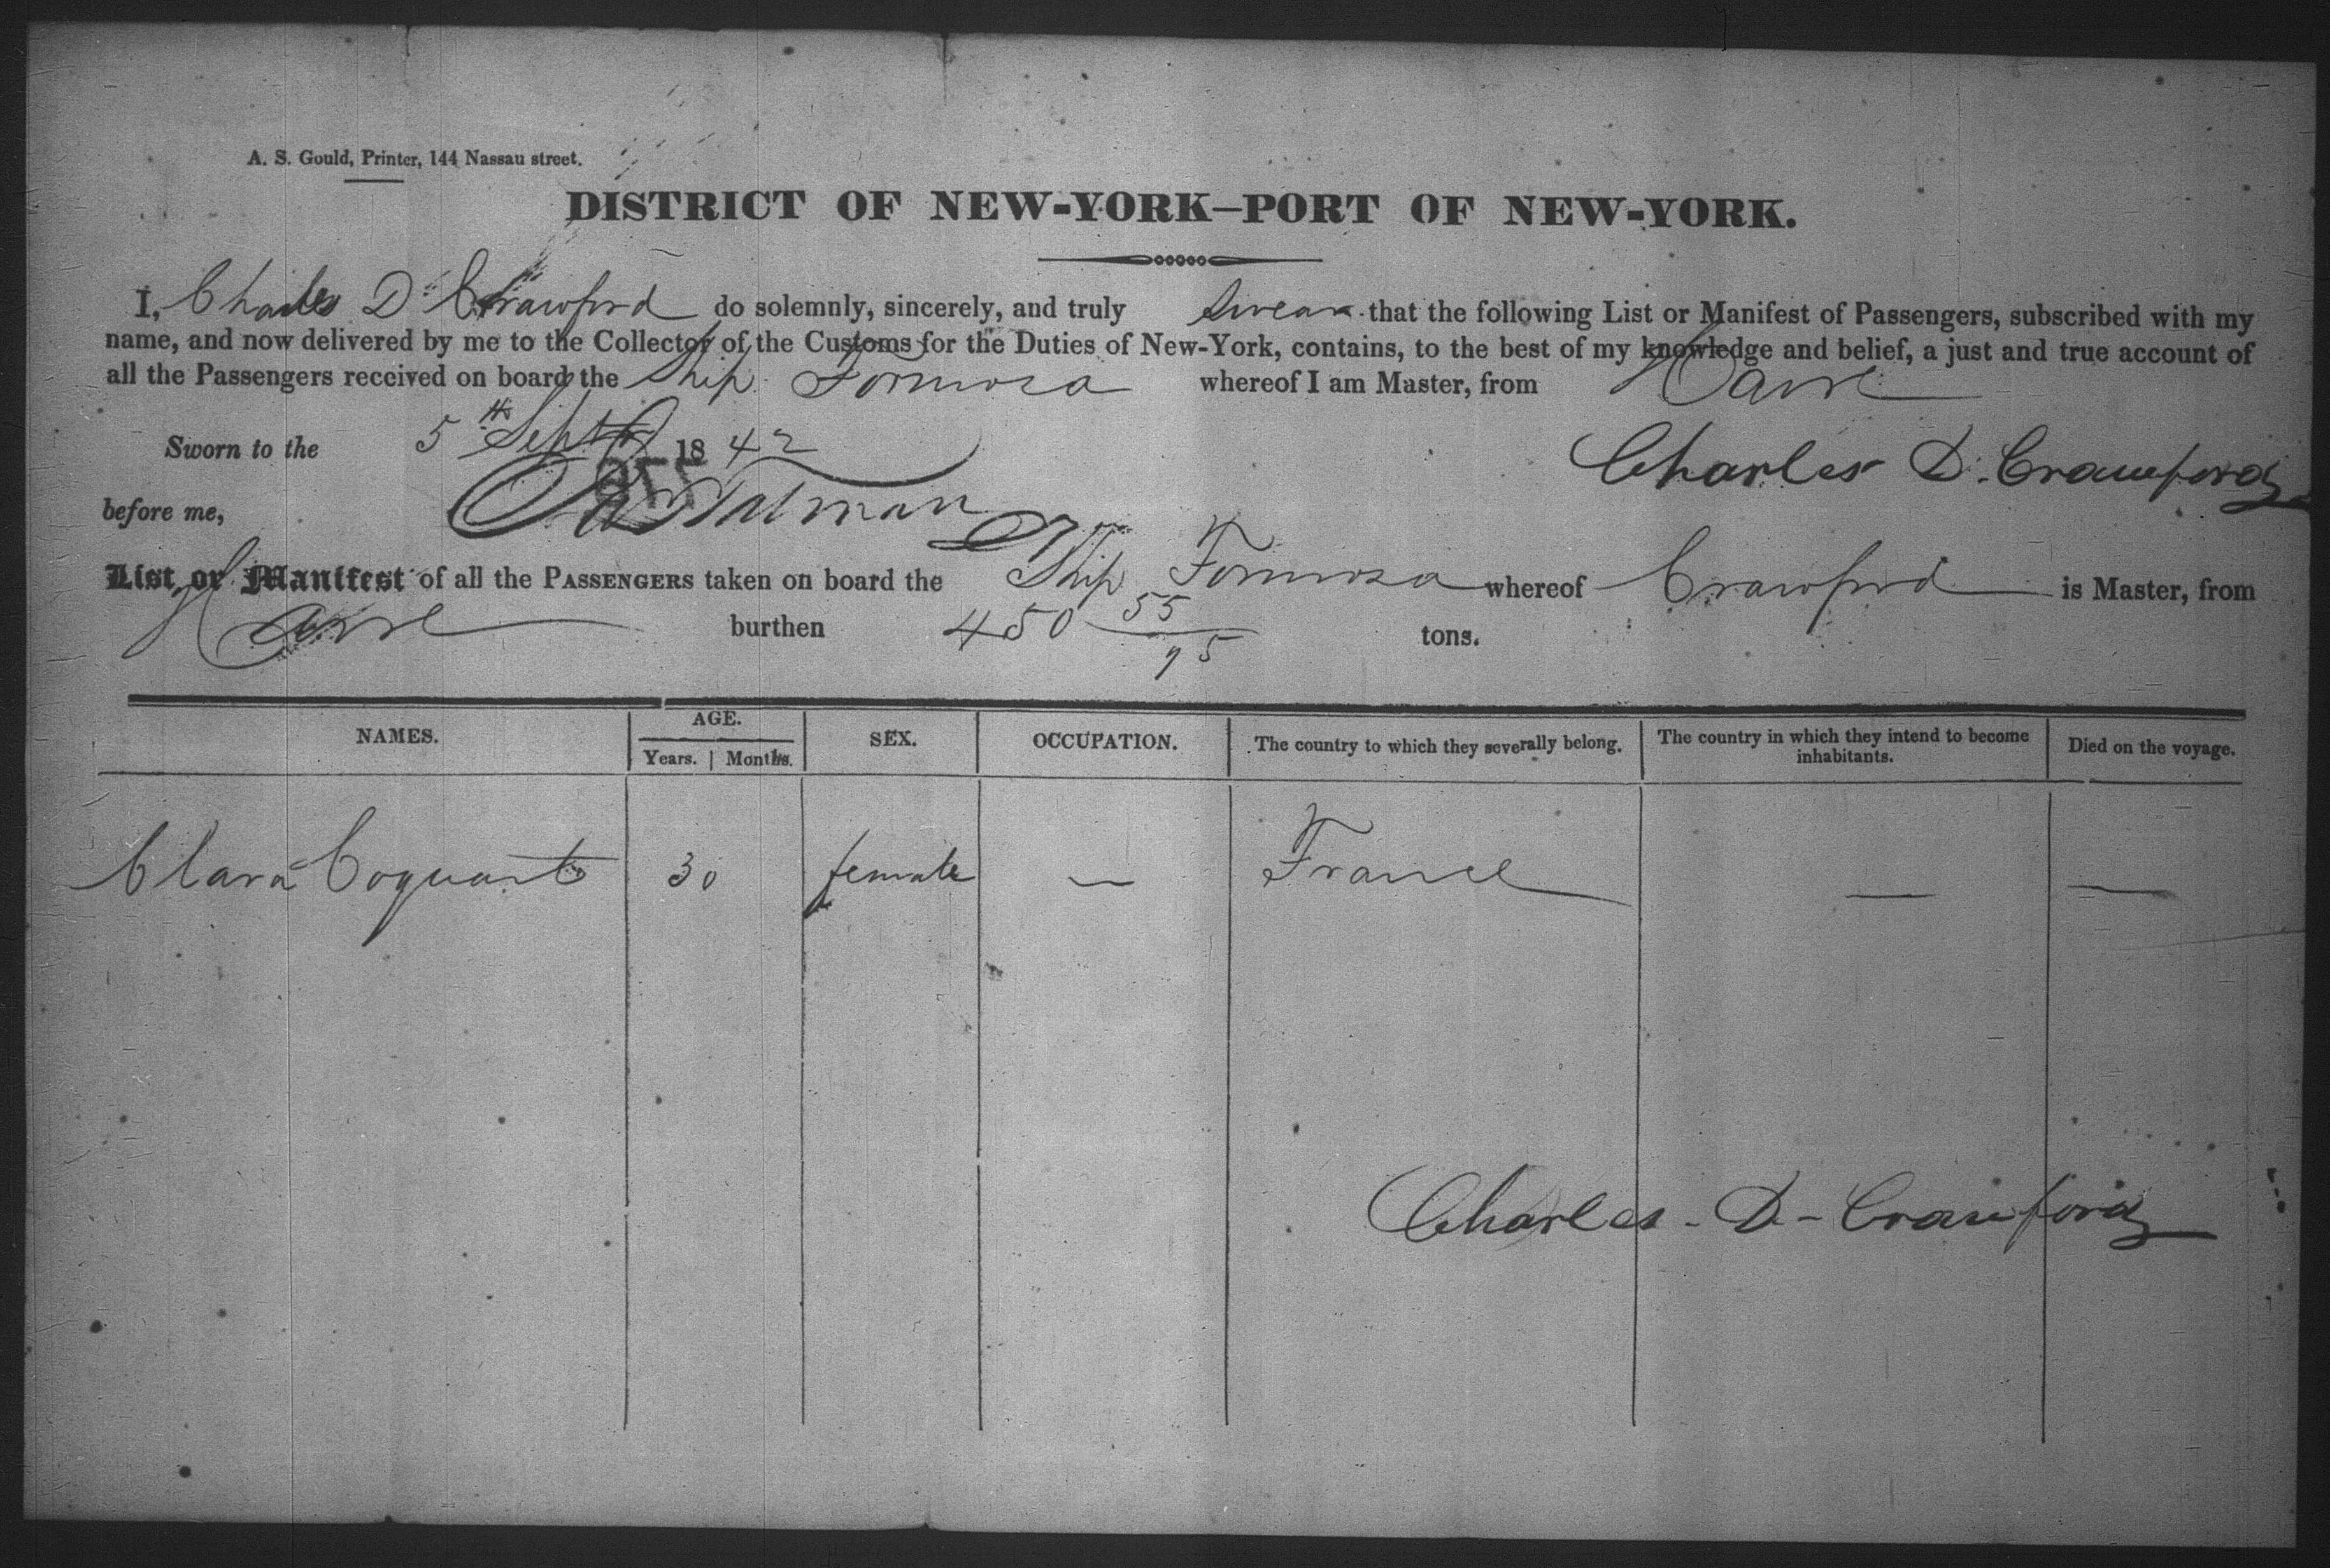 A. S. Gould, Printer, 144 Nassau street.
DISTRICT OF NEW-YORK—PORT OF NEW-YORK.
I, Charles D. Crawford do solemnly, sincerely, and truly swear that the following List or Manifest of Passengers, subscribed with my
name, and now delivered by me to the Collector of the Customs for the Duties of New-York, contains, to the best of my knowledge and belief, a just and true account of
all the Passengers received on board the Ship Formosa whereof I am Master, from Havre
Sworn to the 5th Sept 1842
Charles D. Crawford
before me, Talman
List or Manifest of all the PASSENGERS taken on board the Ship Formosa whereof Crawford is Master, from
Havre burthen 450 55/95 tons.
NAMES. AGE. SEX. OCCUPATION. The country to which they severally belong. The country in which they intend to become inhabitants. Died on the voyage.
Years. | Months.
Clara Coquant 30 female — France — —
Charles - D - Crawford